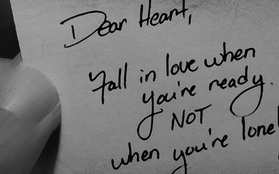 Dear Heart,
Fall in love when
you're ready.
NOT
when you're lonel